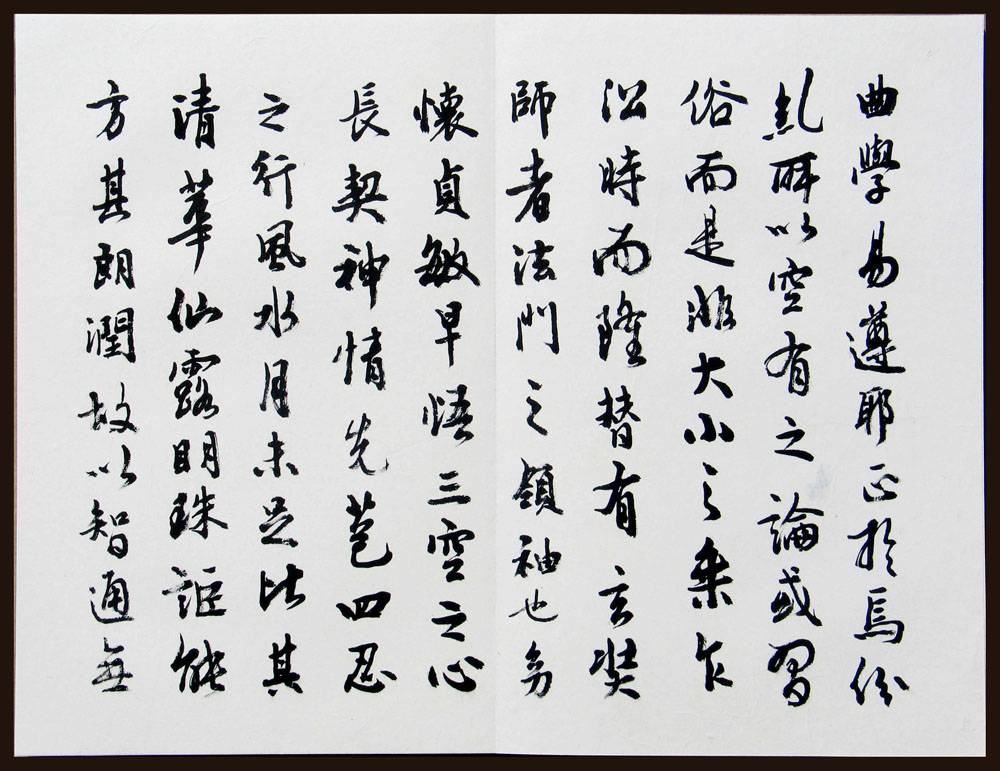 曲學易遵耶正於焉紛
糺所以空有之論或習
俗而是非大小之乘乍
沿時而隆替有玄奘
師者法門之領袖也幼
懷貞敏早悟三空之心
長契神情先苞四忍
之行風水月未足比其
清華仙露明珠詎能
方其朗潤故以智通無